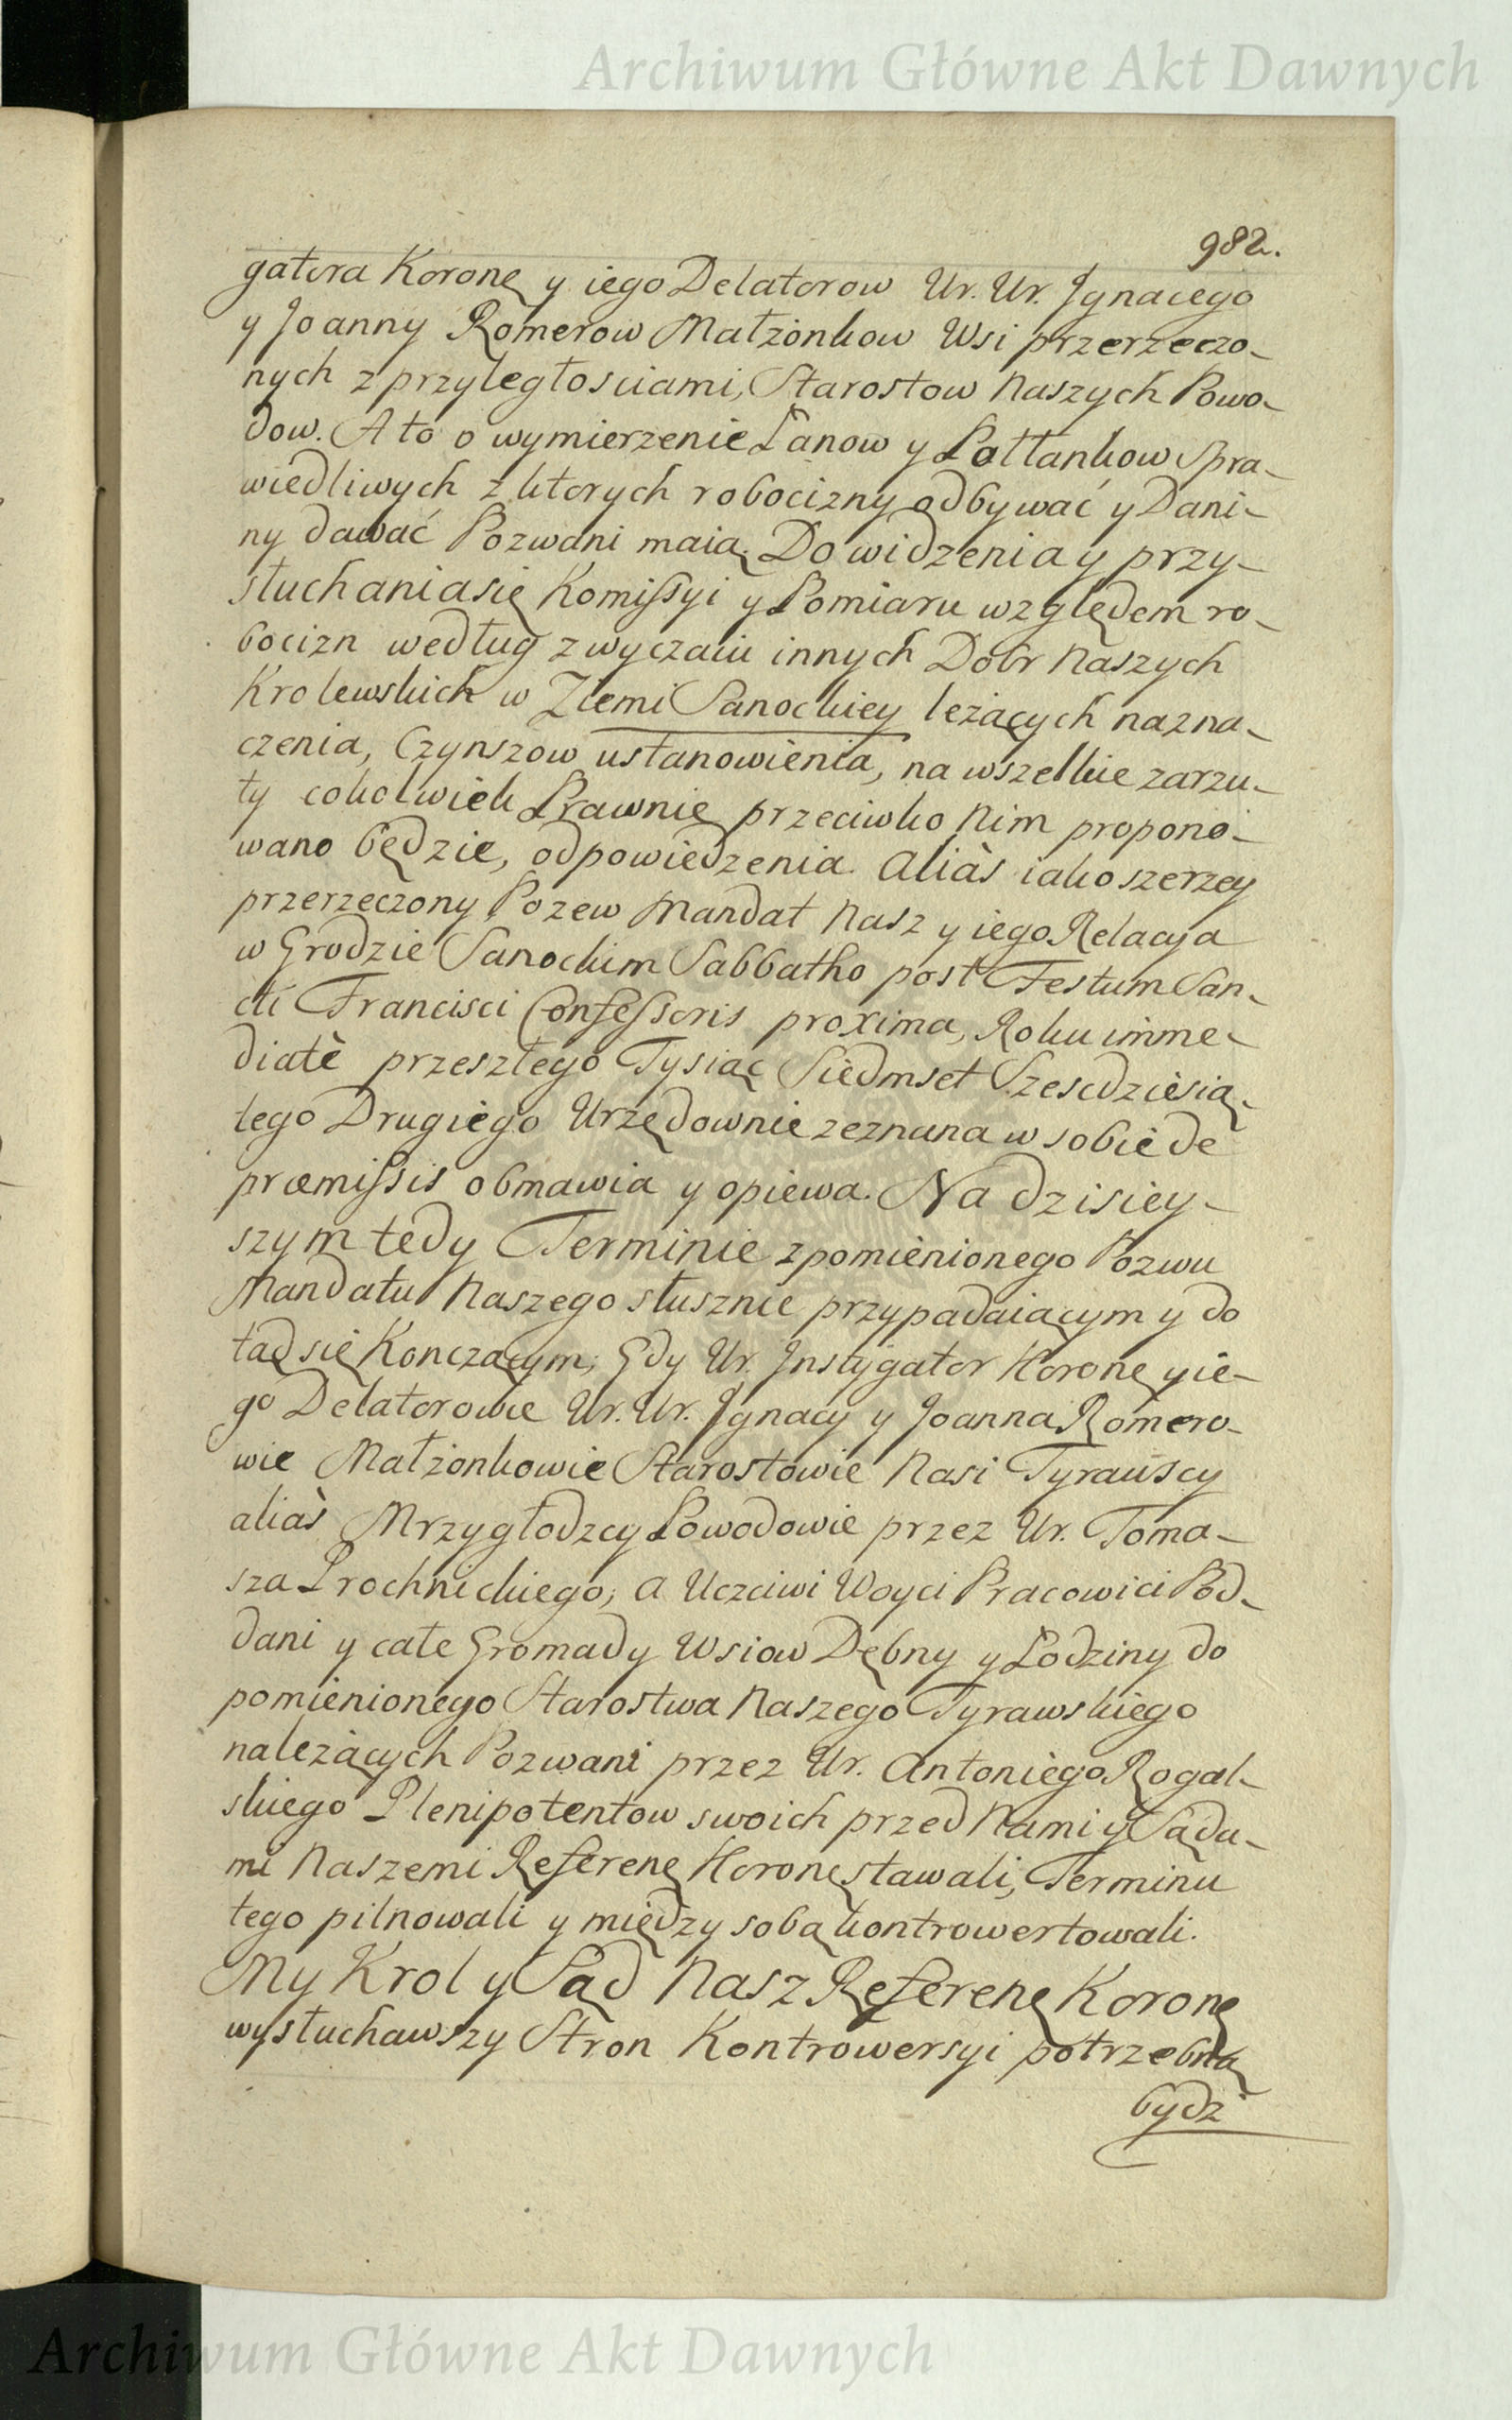 Archiwum Główne Akt Dawnych
982.
gatora Koronę y iego Delatorow Ur. Ur. Ignacego
y Joanny Romerow Małżonkow Wsi przerzeczo-
nych z przyległosciami, Starostow Naszych Powo-
dow. A to o wymierzenie Łanow y Połłankow Spra-
wiedliwych z ktorych robocizny odbywać y Dani-
ny dawać Pozwani maią. Do widzenia y przy-
słuchania się Komissyi y Pomiaru względem ro-
bocizn według zwyczaiu innych Dobr Naszych
Krolewskich w Ziemi Sanockiey leżących nazna-
czenia, Czynszow ustanowienia, na wszelkie zarzu-
ty cokolwiek Prawnie przeciwko Nim propono-
wano będzie, odpowiedzenia. Aliàs iako szerzey
przerzeczony Pozew Mandat Nasz y iego Relacya
w Grodzie Sanockim Sabbatho post Festum San-
cti Francisci Confessoris proxima, Roku imme-
diatè przeszłego Tysiąc Siedmset Szescdziesią-
tego Drugiego Urzędownie zeznana w sobie de
præmissis obmawia y opiewa. Na dzisiey-
szym tedy Terminie z pomienionego Pozwu
Mandatu Naszego słusznie przypadaiącym y do
tąd się Konczącym; Gdy Ur. Instygator Koronę y ie-
go Delatorowie Ur. Ur. Ignacy y Joanna Romero-
wie Małżonkowie Starostowie Nasi Tyrawscy
aliàs Mrzygłodzcy Powodowie przez Ur. Toma-
sza Prochnickiego; a Uczciwi Woyci Pracowici Pod-
dani y całe Gromady Wsiow Dębny y Łodziny do
pomienionego Starostwa Naszego Tyrawskiego
należących Pozwani przez Ur. Antoniego Rogal-
skiego Plenipotentow swoich przed Nami y Sąda-
mi Naszemi Referenę Koronę stawali, Terminu
tego pilnowali y między sobą kontrowertowali.
My Krol y Sąd Nasz Referenę Koronę
wysłuchawszy Stron Kontrowersyi potrzebną
bydz
Archiwum Główne Akt Dawnych